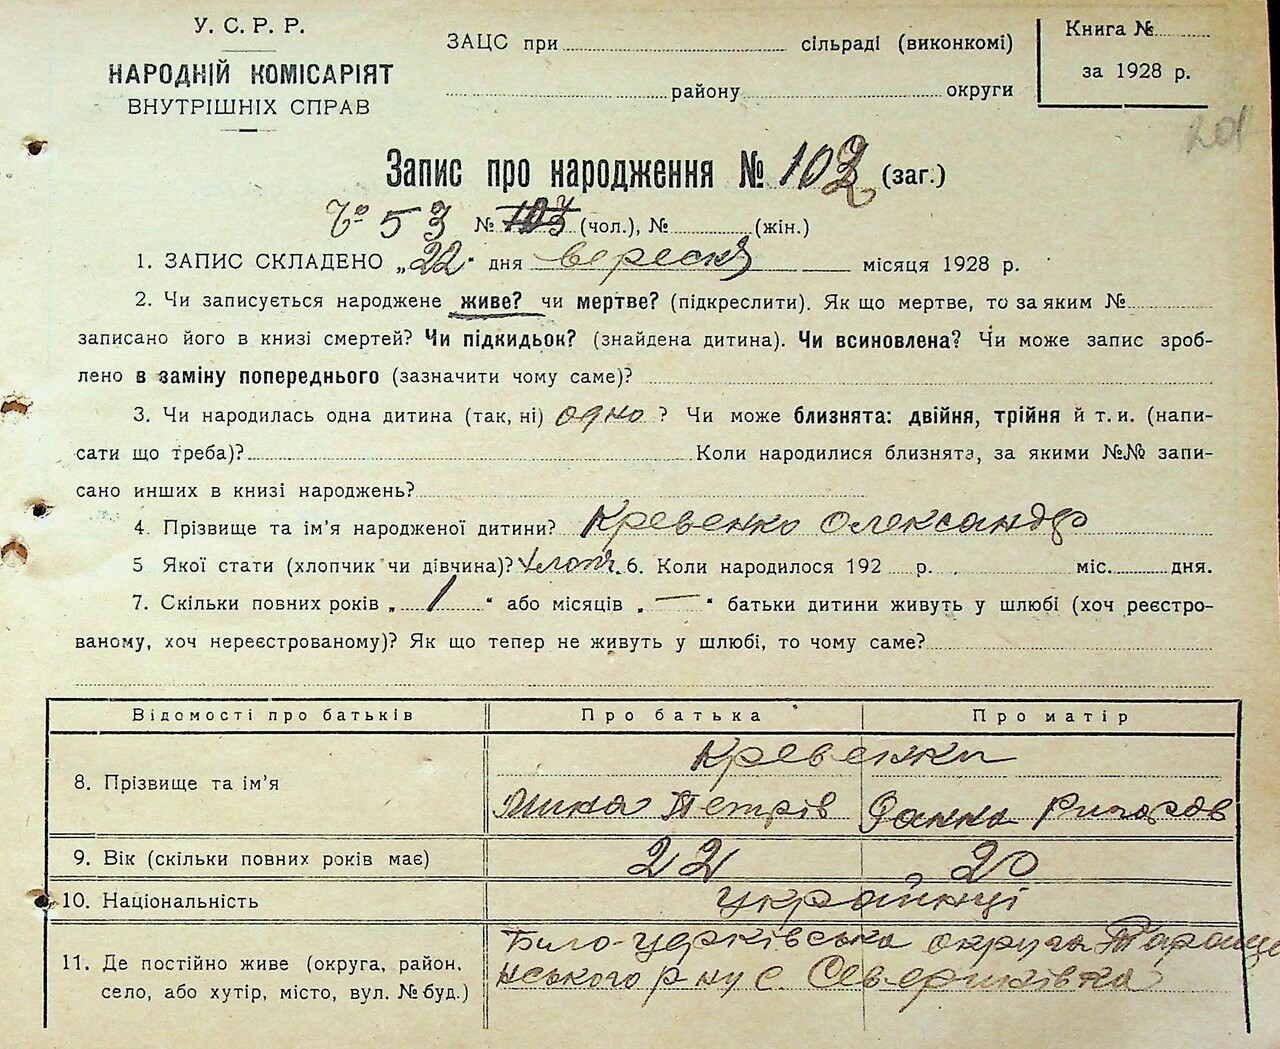 У. С. Р. Р.
НАРОДНІЙ КОМІСАРІЯТ
ВНУТРІШНІХ СПРАВ
ЗАЦС при сільраді (виконкомі)
району округи
Книга №
за 1928 р.
201
Запис про народження № 102 (заг.)
Ч° 53 № 103 (чол.), № (жін.)
1. ЗАПИС СКЛАДЕНО „22" дня вересня місяця 1928 р.
2. Чи записується народжене живе? чи мертве? (підкреслити). Як що мертве, то за яким №
записано його в книзі смертей? Чи підкидьок? (знайдена дитина). Чи всиновлена? Чи може запис зроб-
лено в заміну попереднього (зазначити чому саме)?
3. Чи народилась одна дитина (так, ні) одно ? Чи може близнята: двійня, трійня й т. и. (напи-
сати що треба)? Коли народилися близнята, за якими №№ запи-
сано инших в книзі народжень?
4. Прізвище та ім'я народженої дитини? Кревенко Олександр
5 Якої стати (хлопчик чи дівчина)? хлоп. 6. Коли народилося 192 р. міс. дня.
7. Скільки повних років „ 1 " або місяців „ — " батьки дитини живуть у шлюбі (хоч реєстро-
ваному, хоч нереєстрованому)? Як що тепер не живуть у шлюбі, то чому саме?
Відомості про батьків Про батька Про матір
Кревенки
8. Прізвище та ім'я
Мина Петрів Ганна
9. Вік (скільки повних років має) 22 20
10. Національність українці
11. Де постійно живе (округа, район, село, або хутір, місто, вул. № буд.)
Біло-церківська округа Тараще
нського р ну с.